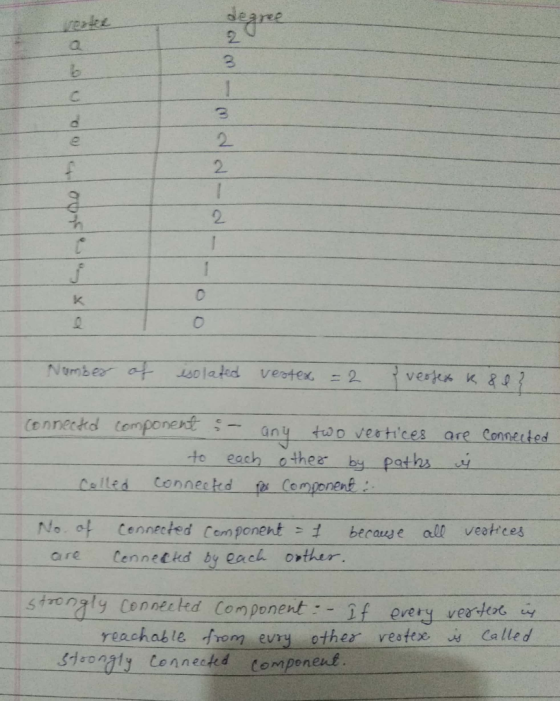 vertex degree
a 2
b 3
c 1
d 3
e 2
f 2
g 1
h 2
i 1
j 1
k 0
l 0
Number of isolated vertex = 2 {vertex k & l}
Connected component :- any two vertices are connected
to each other by paths is
called connected component :.
No. of connected component = 1 because all vertices
are connected by each orther.
strongly connected component :- If every vertex is
reachable from evry other vertex is called
strongly connected component.